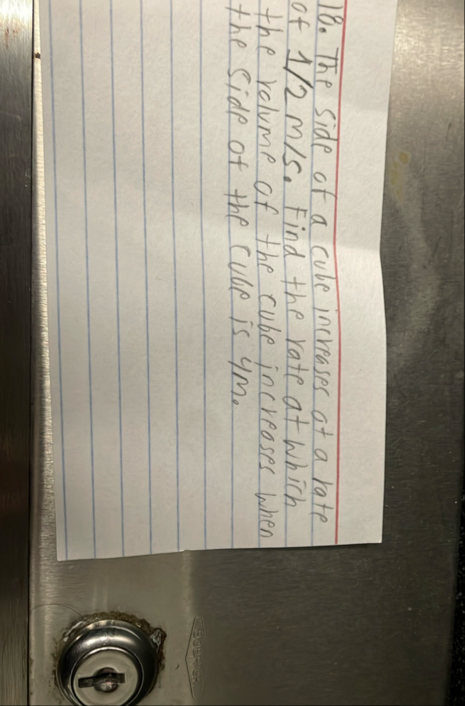 18. The side of a cube increases at a rate
of 1/2 m/s. Find the rate at which
the volume of the cube increases when
the side of the cube is 4m.